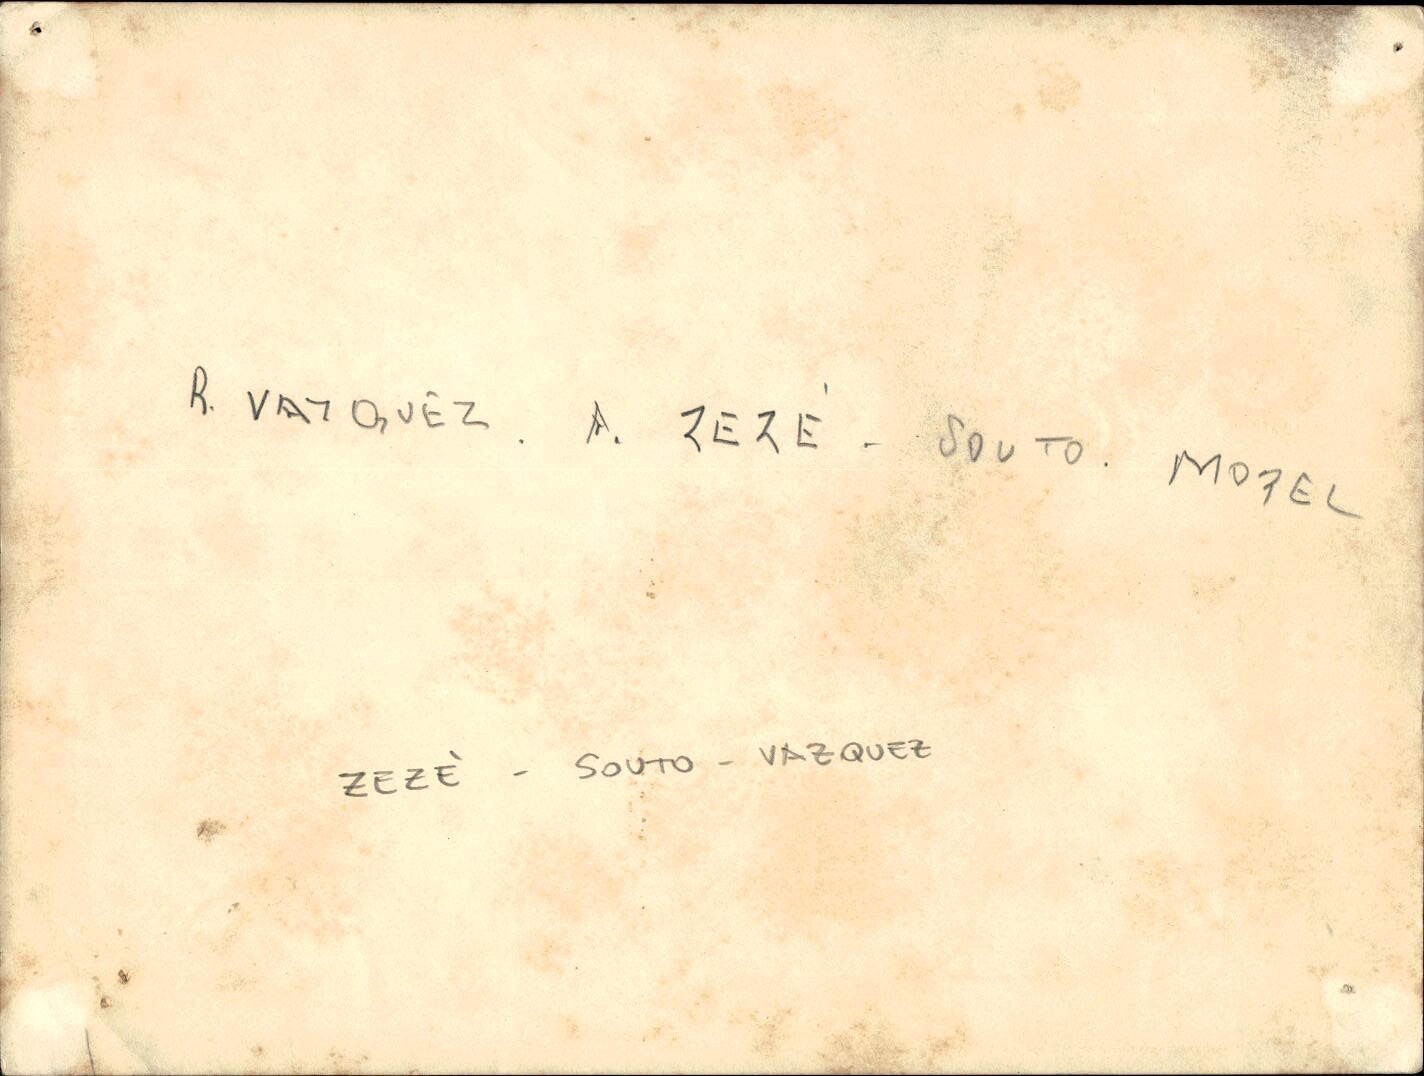 R. VAZQUÊZ. A. ZEZÉ - SOUTO. MOZEL
ZEZÈ - SOUTO - VAZQUEZ